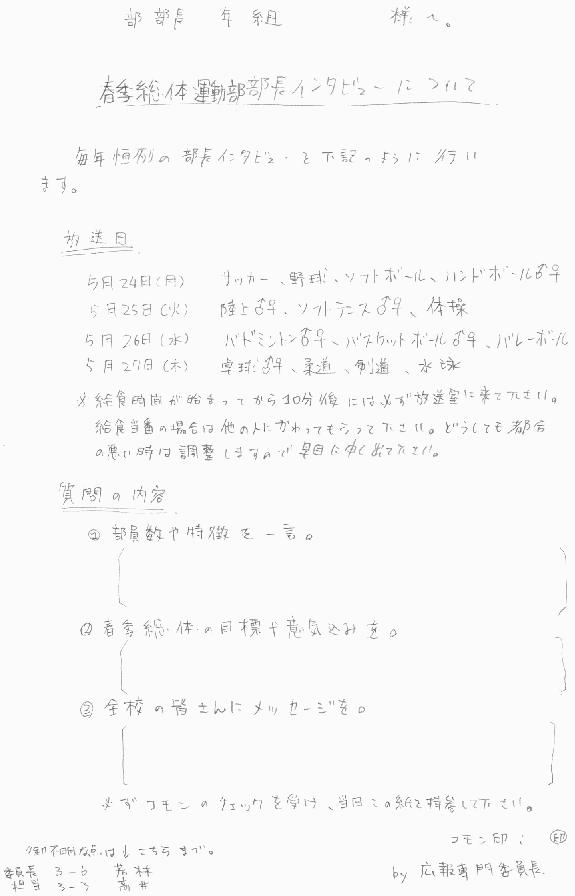 部 部長 年 組 様へ。
春季総体運動部部長インタビューについて
毎年恒例の部長インタビューを下記のように行い
ます。
放送日
5月24日(月) サッカー、野球、ソフトボール、ハンドボール♂♀
5月25日(火) 陸上♂♀、ソフトテニス♂♀、体操
5月26日(水) バドミントン♂♀、バスケットボール♂♀、バレーボール
5月27日(木) 卓球♂♀、柔道、剣道、水球
※給食時間が始まってから10分後には必ず放送室に来て下さい。
給食当番の場合は他の人にかわってもらって下さい。どうしても都合
の悪い時は調整しますので早目に申し出て下さい。
質問の内容
① 部員数や特徴を一言。
② 春季総体の目標や意気込みを。
③ 全校の皆さんにメッセージを。
必ずコモンのチェックを受け、当日この紙を持参して下さい。
コモン印: 印
御不明な点はこちらまで。
委員長 3-6 若林
担当 3-3 高井
by 広報専門委員長